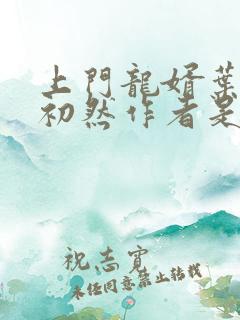 上門龍婿葉
初然作者是
祝志寳
未经同意禁止转载